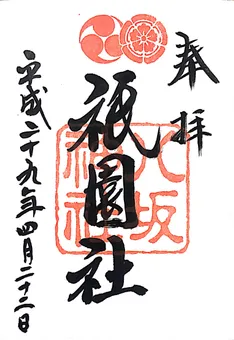 奉拝
祇園社
八坂神社
平成二十九年四月二十二日